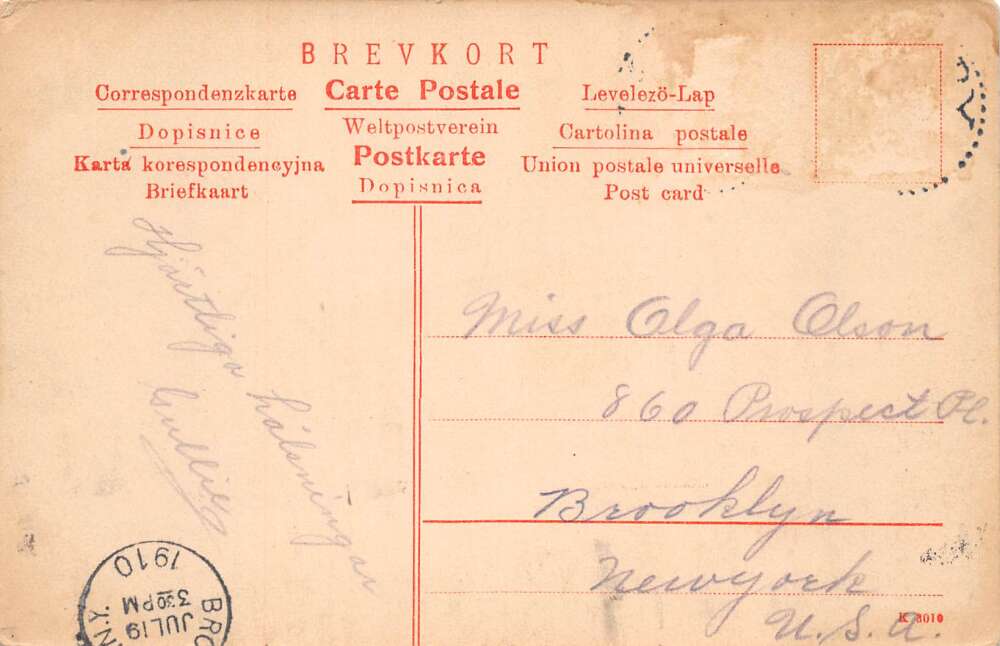 BREVKORT
Correspondenzkarte
Dopisnice
Karta korespondencyjna
Briefkaart
Carte Postale
Weltpostverein
Postkarte
Dopisnica
Levelező-Lap
Cartolina postale
Union postale universelle
Post card
Hjärtliga hälsningar
Miss Olga Olson
860 Prospect Pl.
Brooklyn
Newyork
U.S.A.
K 8010
BRO
N.Y.
JUL 19
3 30 PM
1910